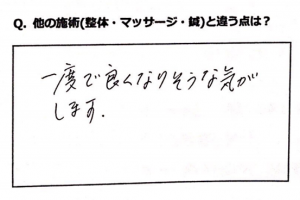 Q. 他の施術(整体・マッサージ・鍼)と違う点は？
一度で良くなりそうな気が
します.